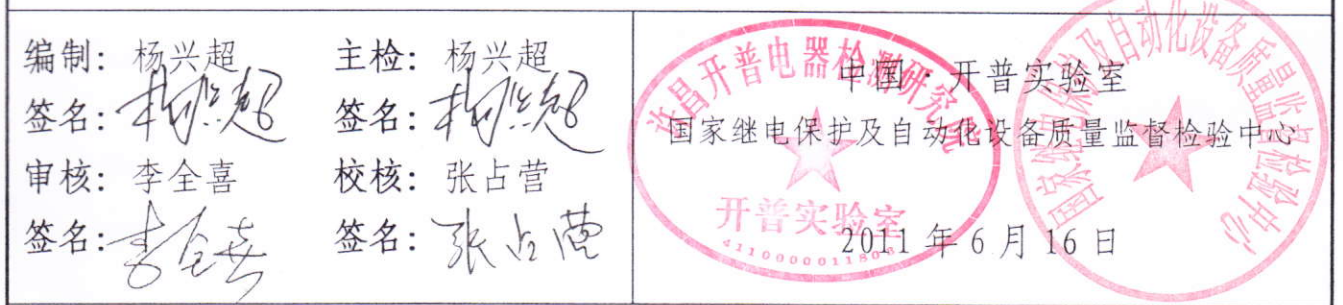 编制：杨兴超 主检：杨兴超
签名：杨兴超 签名：杨兴超
审核：李全喜 校核：张占营
签名：李全喜 签名：张占营
中国·开普实验室
国家继电保护及自动化设备质量监督检验中心
2011年6月16日
许昌开普电器检测研究院
开普实验室
国家继电保护及自动化设备质量监督检验中心